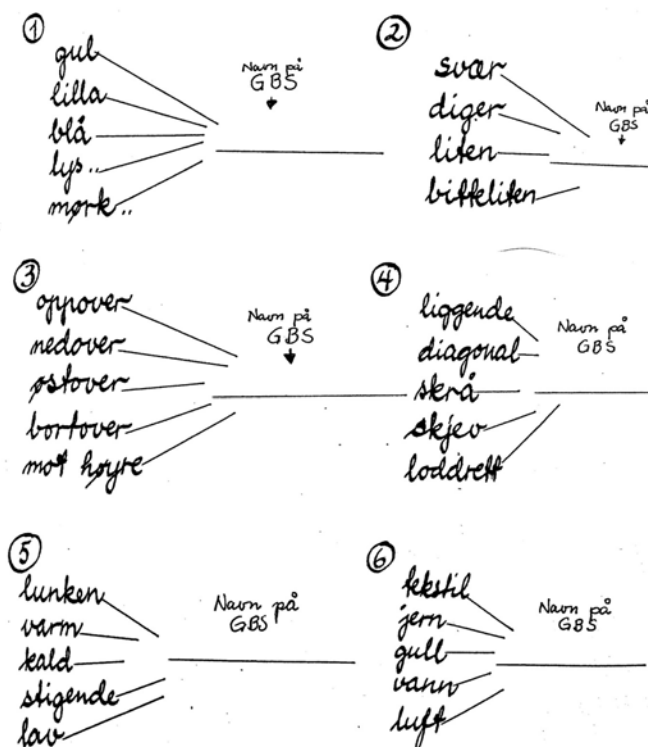 ①
gul
lilla
blå
lys..
mørk..
Navn på
GBS
②
svær
diger
liten
bitteliten
Navn på
GBS
③
oppover
nedover
østover
bortover
mot høyre
Navn på
GBS
④
liggende
diagonal
skrå
skjev
loddrett
Navn på
GBS
⑤
lunken
varm
kald
stigende
lav
Navn på
GBS
⑥
tekstil
jern
gull
vann
luft
Navn på
GBS